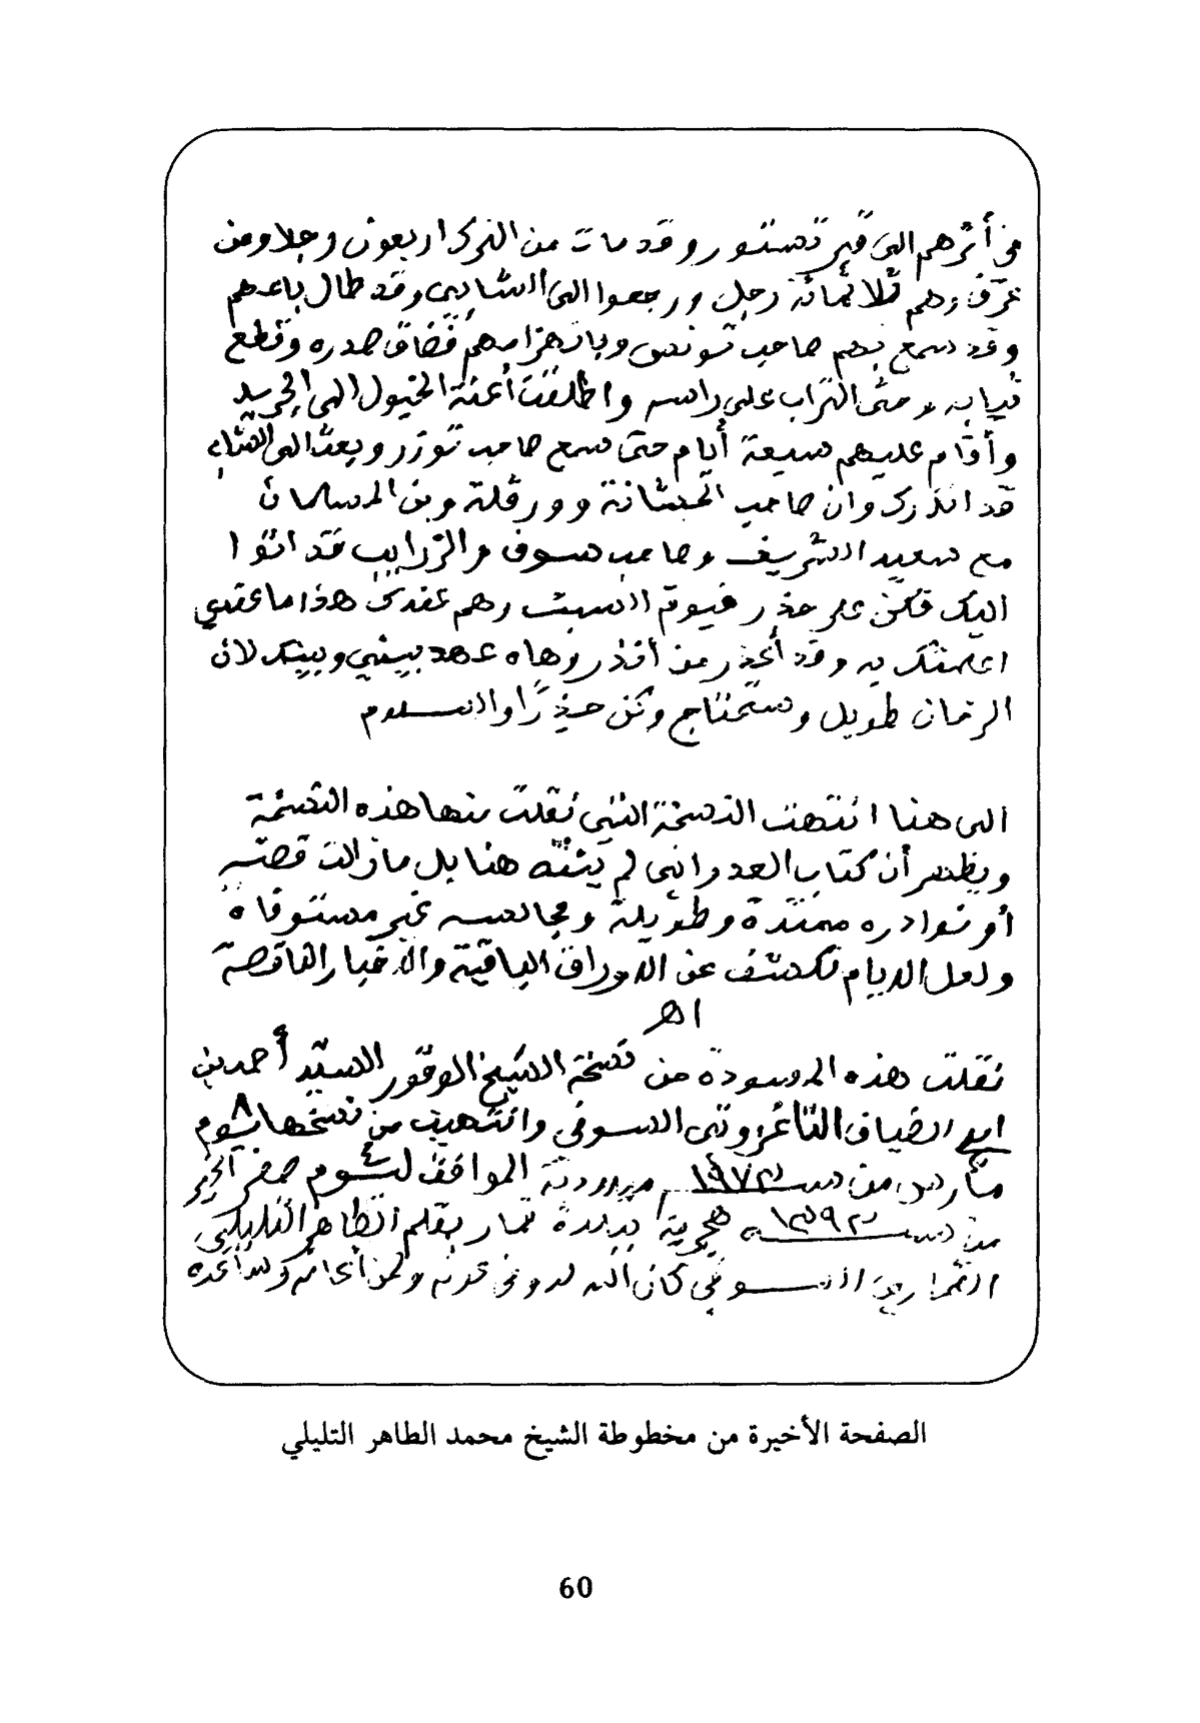 في أثرهم الى قبر تستور وقد مات من الترك اربعون رجلا ومن
غرفهم ثلاثمائة رجل ورجعوا الى الشابي وقد طال باعهم
وقد سمع بهم صاحب تونس وبانهزامهم فضاق صدره وقطع
ثيابه وحثى التراب على راسه واطلقت أعنة الخيول الى الجريد
وأقام عليهم سبعة أيام حتى سمع صاحب توزر وبعث الى الشابي
قد انذرك وان صاحب الخبشانة وورقلة وبن المسلمان
مع سعيد الشريف وصاحب سوف والزرايب قد اتوا
اليك فكن على حذر فيوم السبت وهم عندك هذا ما عندي
اعلمتك به وقد أعذر من أنذر وهاه عهد بيني وبينك لان
الزمان طويل وستحتاج وكن حذرًا والسلام
الى هنا انتهت النسخة التي نقلت منها هذه النسخة
ويظهر أن كتاب العدواني لم ينته هنا بل مازالت قصته
أو نوادره ممتدة وطويلة ومجالسه غير مستوفاة
ولعل الايام تكشف عن الاوراق الباقية والاخبار الناقصة
اهـ
نقلت هذه المسودة من نسخة الشيخ الوقور السيد أحمد بن
ابي الضياف التاغزوتي السوفي وانتهيت من نسخها يوم ٨
مارس من سنة ١٩٧٢ ميلادية الموافق لـ صفر الخير
من سنة ١٣٩٢ هجرية ببلدة قمار بقلم الطاهر التليلي
القماري السوفي كان الله له وفي عونه ولمن أعانه وساعده
الصفحة الأخيرة من مخطوطة الشيخ محمد الطاهر التليلي
60